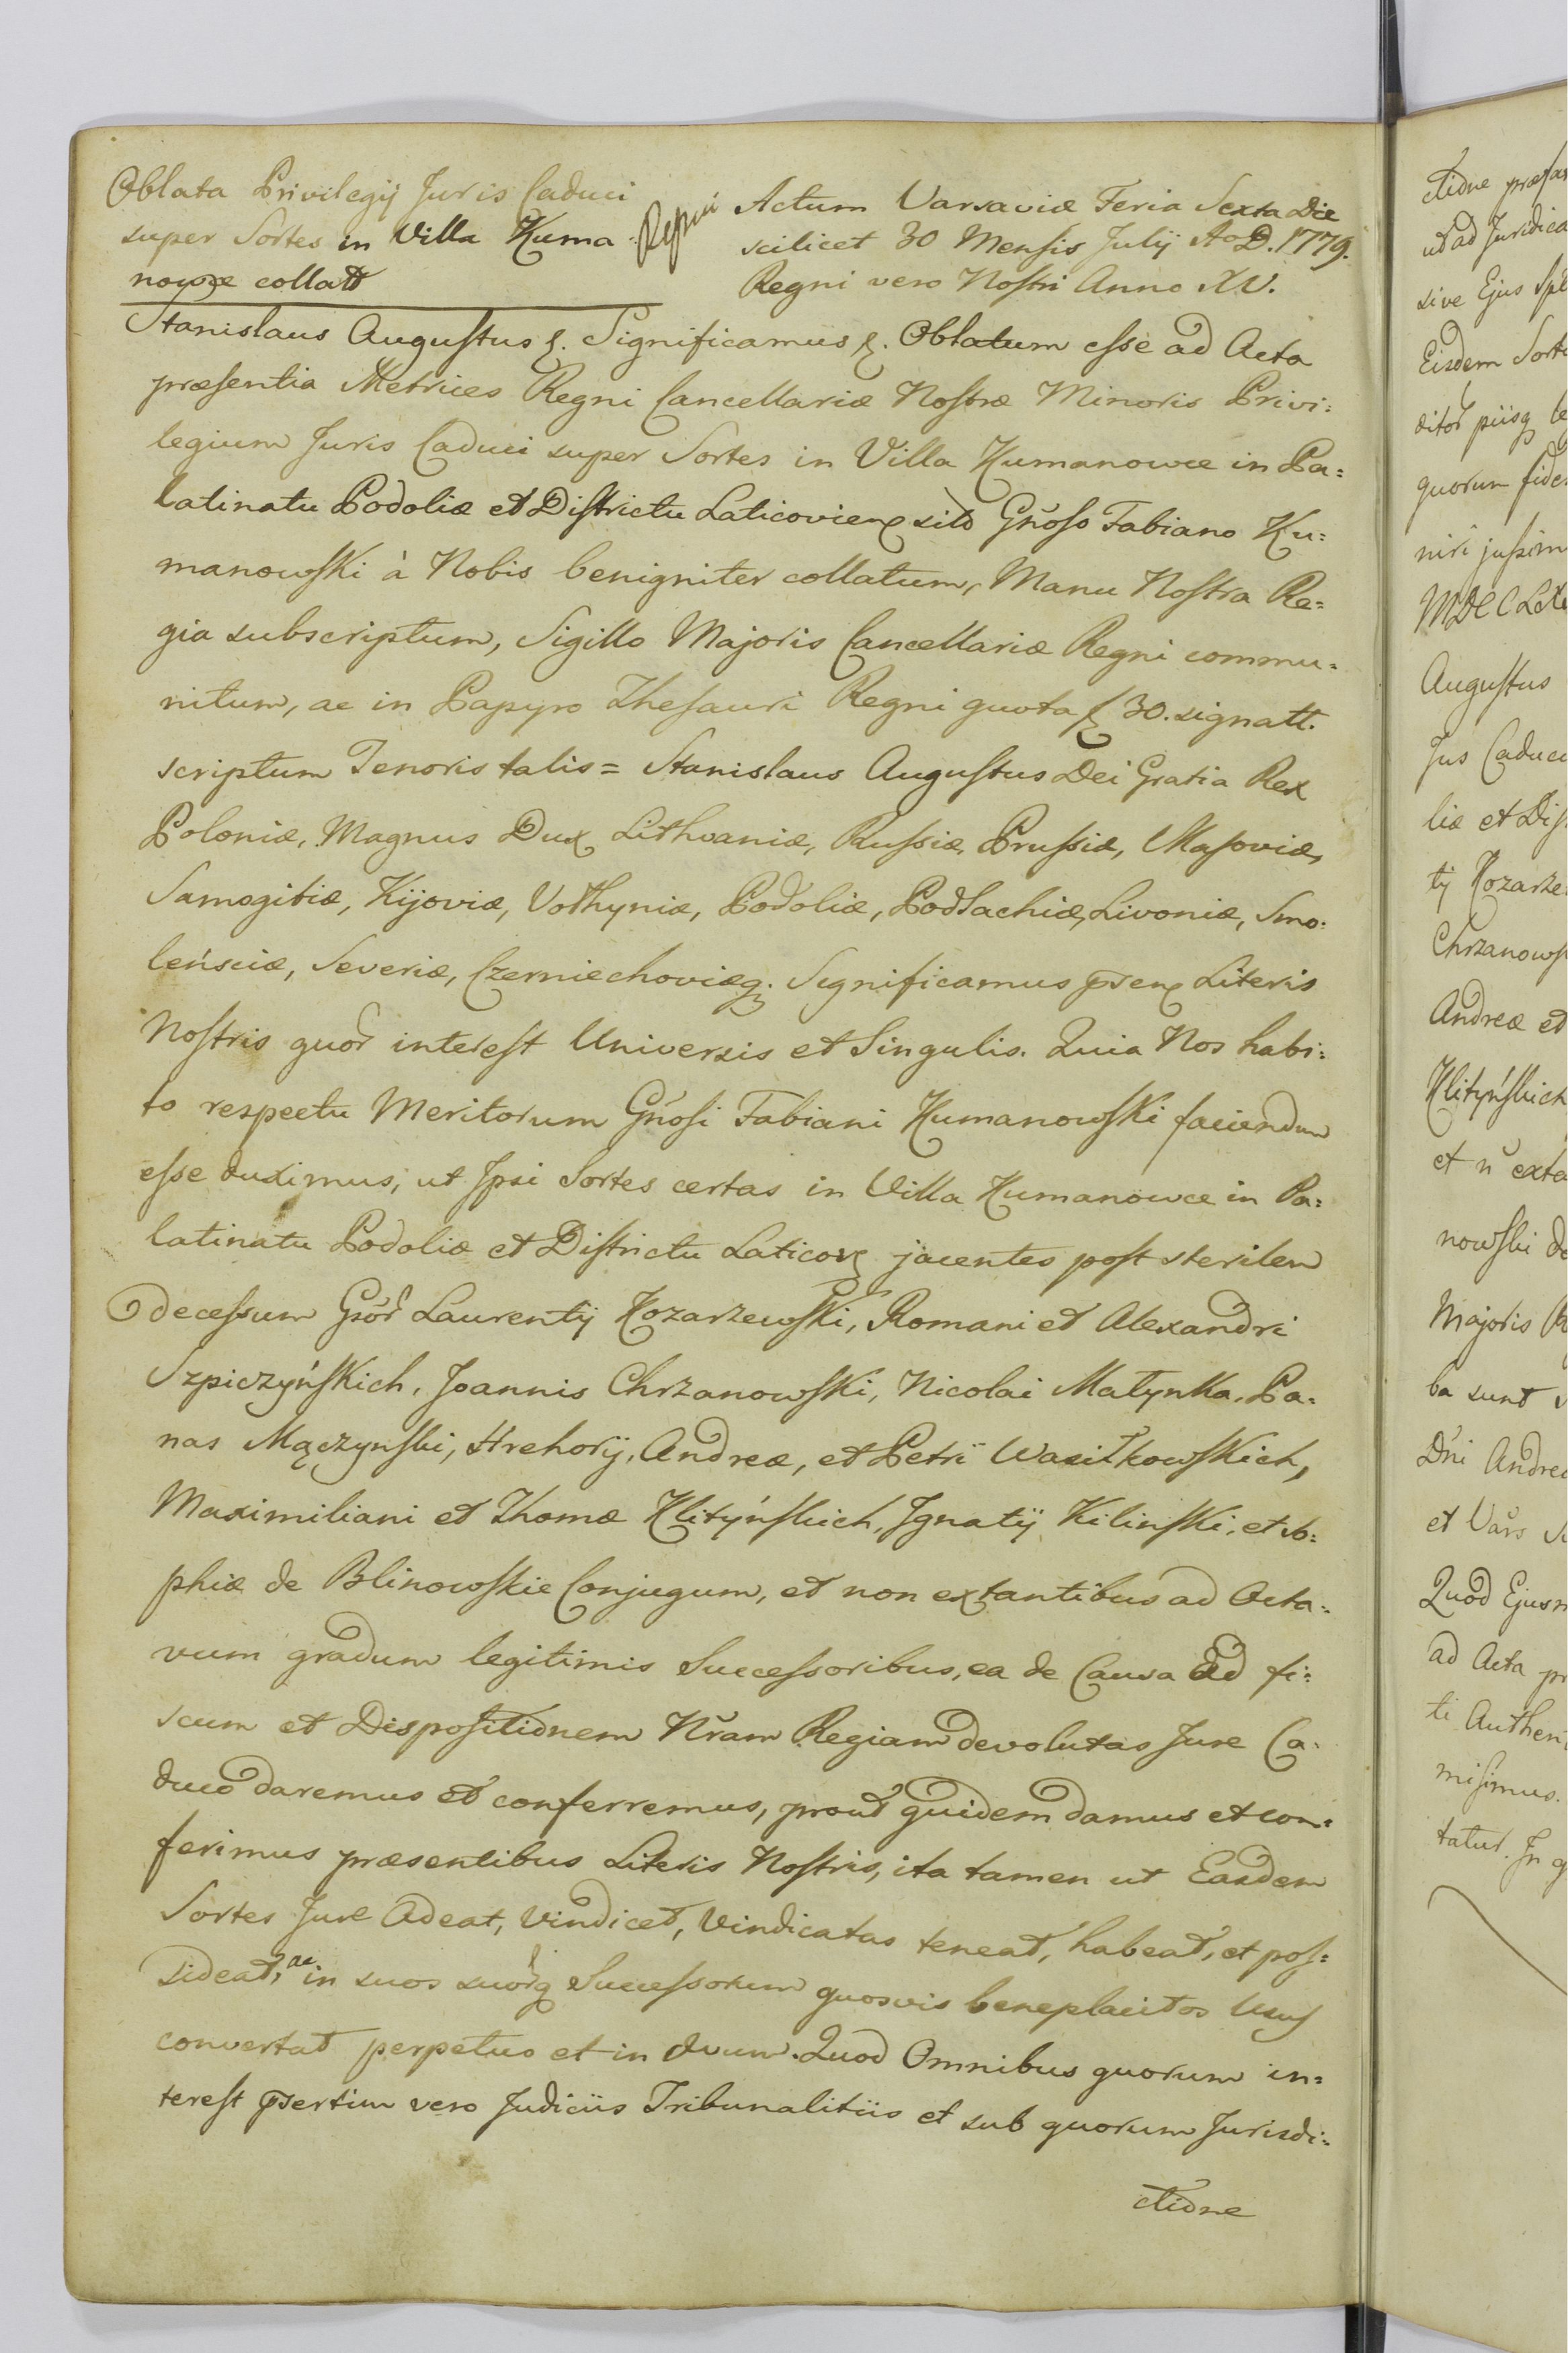 Oblata Privilegij Juris Caduci
super Sortes in Villa Kuma
nowce collatt
Actum Varsaviæ Feria Sexta Die
scilicet 30 Mensis Julij Ao D. 1779.
Regni vero Nostri Anno XV.
Stanislaus Augustus &. Significamus &. Oblatum esse ad Acta
præsentia Metrices Regni Cancellariæ Nostræ Minoris Privi=
legium Juris Caduci super Sortes in Villa Kumanowce in Pa=
latinatu Podoliæ et Districtu Laticovien sito Gñoso Fabiano Ku=
manowski à Nobis benigniter collatum, Manu Nostra Re=
gia subscriptum, Sigillo Majoris Cancellariæ Regni commu=
nitum, ac in Papyro Thesauri Regni quota f 30. signatt.
scriptum Tenoris talis= Stanislaus Augustus Dei Gratia Rex
Poloniæ, Magnus Dux Lithvaniæ, Russiæ, Prussiæ, Masoviæ,
Samogitiæ, Kijoviæ, Vołhyniæ, Podoliæ, Podlachiæ, Livoniæ, Smo=
leńsciæ, Severiæ, Czerniechoviæq. Significamus pren Literis
Nostris quor interest Universis et Singulis. Quia Nos habi=
to respectu Meritorum Gñosi Fabiani Kumanowski faciendum
esse duximus, ut Ipsi Sortes certas in Villa Kumanowce in Pa=
latinatu Podoliæ et Districtu Laticov jacentes post sterilem
decessum Gsor Laurentij Kozarzewski, Romani et Alexandri
Szpiczyńskich, Joannis Chrzanowski, Nicolai Małynka, Pa=
nas Mączynski, Hrehorij, Andreæ, et Petri Wasiłkowskich,
Maximiliani et Thomæ Hlityńskich, Ignatij Kilinski, et So=
phiæ de Blinowskie Conjugum, et non extantibus ad Octa=
vum gradum legitimis Successoribus, ea de Causa Ad fi=
scum et Dispositionem Nram Regiam devolutas Jure Ca=
duco daremus et conferremus, prout quidem damus et con=
ferimus præsentibus Literis Nostris, ita tamen ut Easdem
Sortes Jure Adeat, Vindicet, Vindicatas teneat, habeat, et pos=
sideat, ac in suos suorq Successorum quosvis beneplacitos Usus
convertat perpetuo et in ævum. Quod Omnibus quorum in=
terest prsertim vero Judiciis Tribunalitiis et sub quorum Jurisdi=
ctione
ctione præfa
ut ad Juridica
sive Ejus Spe
Eisdem Sorti
ditor piisq
quorum fide
niri jussim
Augustus
Jus Caduci
liæ et Dis
tij Kozarze
Chrzanows
Andreæ et
Hlityńskich
et n exta
nowski de
Majoris R
ba sunt
Dni Andrea
et Vars
Quod Ejusm
ad Acta pr
ti Authen
misimus.
tatur. In q